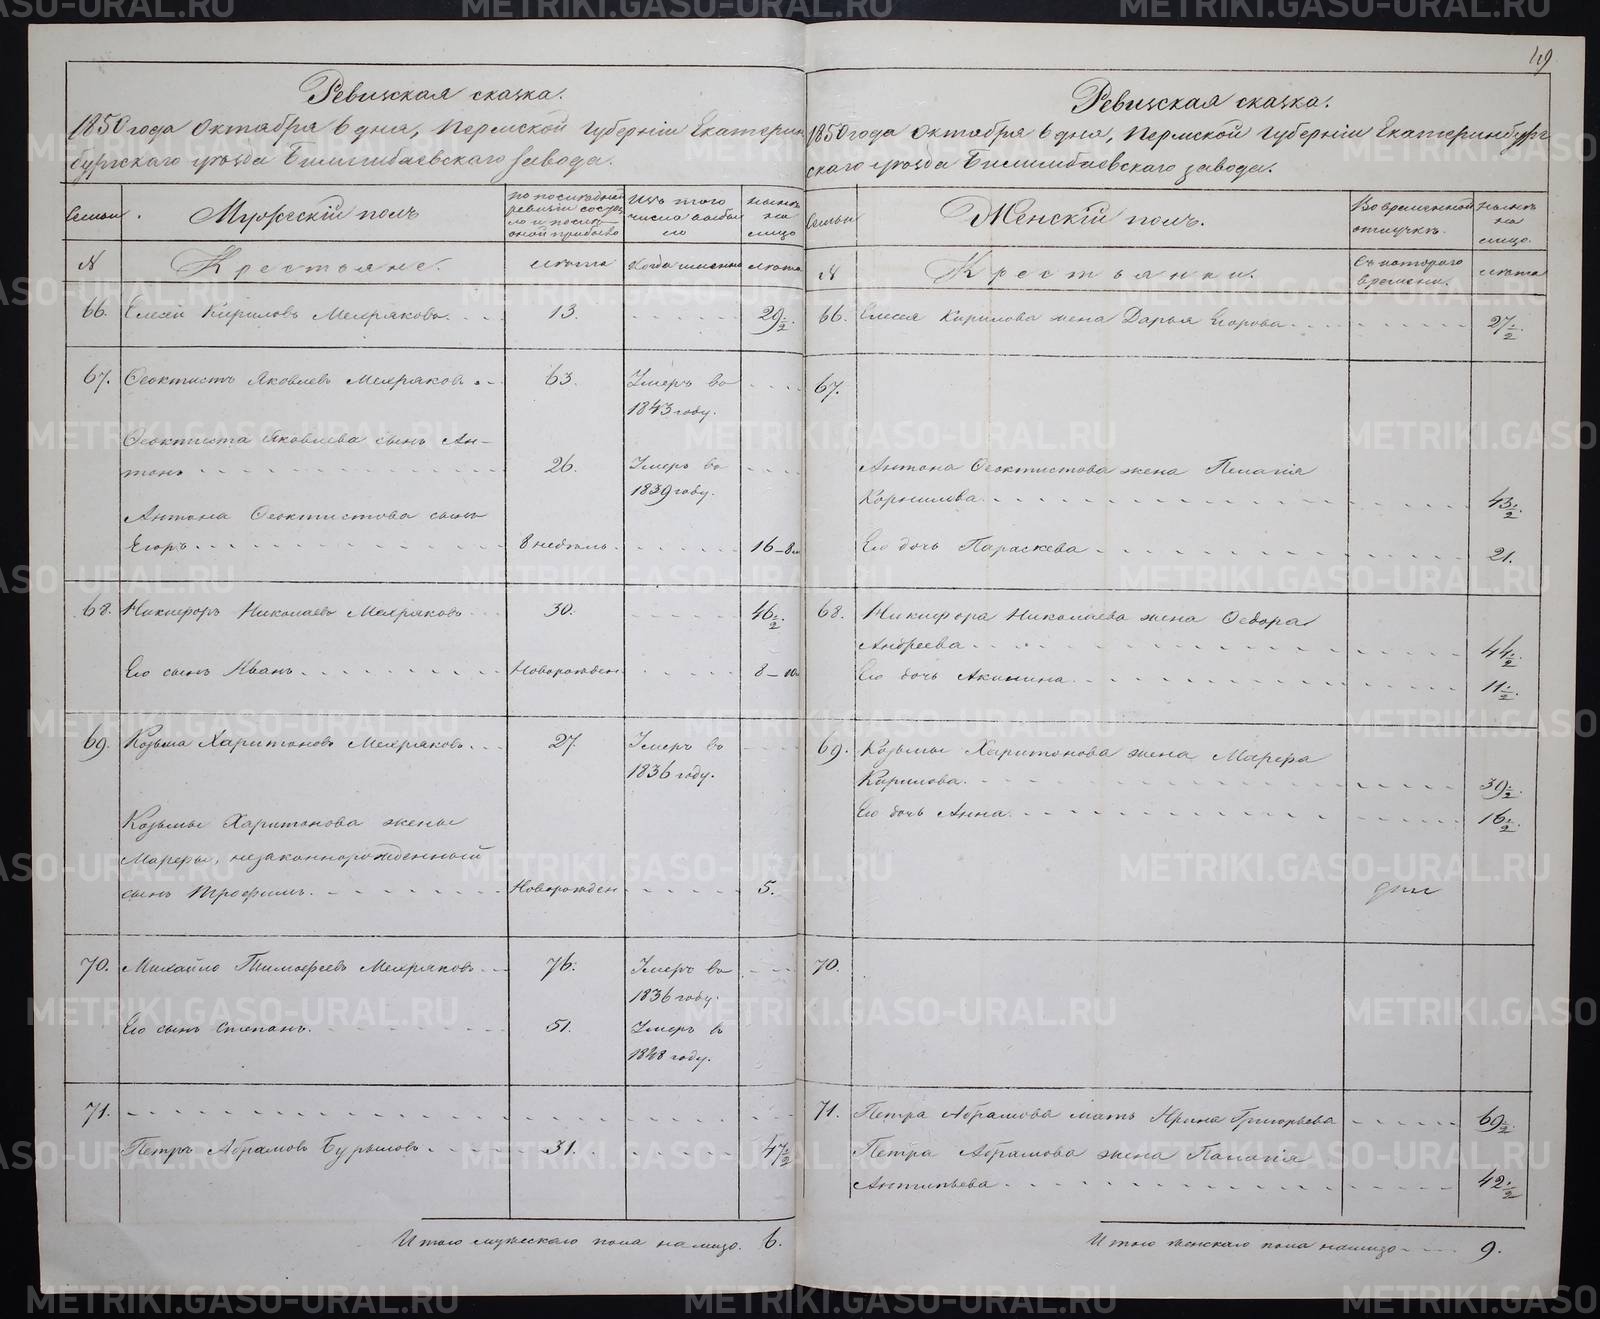 49
Ревизская сказка.
1850 года Октября 6 дня, Пермской Губернiи Екатерин
бургскаго уѣзда Билимбаевскаго завода.
Семьи. Мужескiй полъ
по послѣдней ревизiи состояло и послѣ оной прибыло
Изъ того числа выбыло
нынѣ на лицо
№ Крестьяне. лѣта когда именно лѣта
66. Елисей Кириловъ Мехряковъ. 13. 29 1/2.
67. Ѳеоктистъ Яковлевъ Мехряковъ. 63. Умеръ въ
1843 году.
Ѳеоктиста Яковлева сынъ Ан-
тонъ 26. Умеръ въ
1839 году.
Антона Ѳеоктистова сынъ
Егоръ 8 недѣль. 16-8м
68. Никифоръ Николаевъ Мехряковъ 30. 46 1/2.
Его сынъ Иванъ Новорожден 8-10
69. Козьма Харитоновъ Мехряковъ. 27 Умеръ въ
1836 году.
Козьмы Харитонова жены
Марѳы, незаконнорожденный
сынъ Трофимъ. Новорожден 5.
70. Михайло Тимофеевъ Мехряковъ 76. Умеръ въ
1836 году.
Его сынъ Степанъ. 51. Умеръ въ
1848 году.
71.
Петръ Абрамовъ Бурымовъ. 31. 47 1/2
Итого мужескаго пола налицо. 6.
Ревизская сказка.
1850 года Октября 6 дня, Пермской Губернiи Екатеринбург
скаго уѣзда Билимбаевскаго завода.
Семьи Женскiй полъ.
Во временной отлучкѣ.
нынѣ на лицо.
№ Крестьянки. Съ котораго времени. лѣта
66. Елисея Кирилова жена Дарья Егорова. 27 1/2.
67.
Антона Ѳеоктистова жена Пелагiя
Корнилова. 43 1/2.
Его дочь Параскева 21.
68. Никифора Николаева жена Ѳедора
Андреева 44 1/2.
Его дочь Акилина. 11 1/2.
69. Козьмы Харитонова жена Марѳа
Карилова. 39 1/2.
Его дочь Анна. 16 1/2.
70.
71. Петра Абрамова мать Ирина Григорьева 69 1/2.
Петра Абрамова жена Палагiя
Антипьева 42 1/2
Итого женскаго пола налицо 9.
METRIKI.GASO-URAL.RU